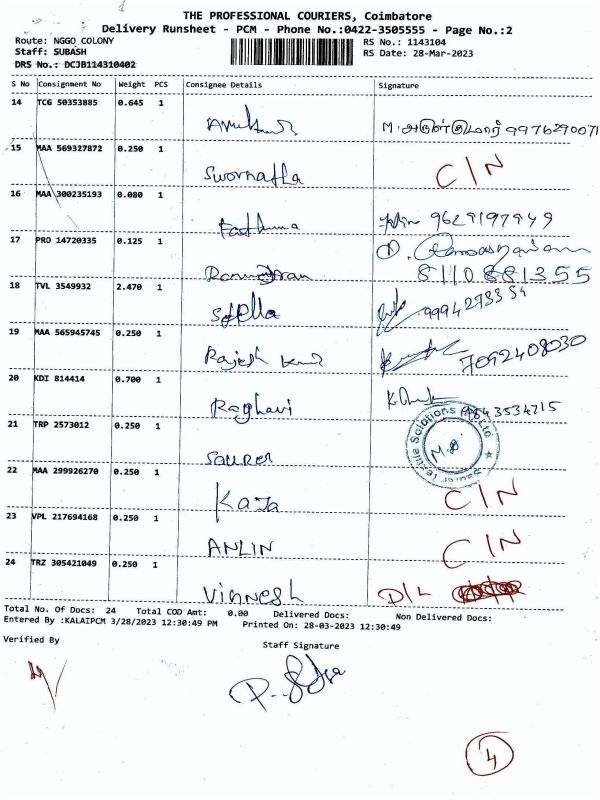 THE PROFESSIONAL COURIERS, Coimbatore
Delivery Runsheet - PCM - Phone No.:0422-3505555 - Page No.:2
Route: NGGO COLONY RS No.: 1143104
Staff: SUBASH RS Date: 28-Mar-2023
DRS No.: DCJB114310402
S No Consignment No Weight PCS Consignee Details Signature
14 TCG 50353885 0.645 1
M. அருண்குமார் 9976290071
15 MAA 569327872 0.250 1
C/N
16 MAA 300235193 0.080 1
Fathima 9629197949
17 PRO 14720335 0.125 1
8110881355
18 TVL 3549932 2.470 1
Stella
19 MAA 565945745 0.250 1
Rajesh Kumar 7092408030
20 KDI 814414 0.700 1
Raghavi
21 TRP 2573012 0.250 1
SAURER Saurer Textile Solutions Pvt Ltd
22 MAA 299926270 0.250 1
KAJA C/N
23 VPL 217694168 0.250 1
ANLIN C/N
24 TRZ 305421049 0.250 1
VIGNESH D/L
Total No. Of Docs: 24 Total COD Amt: 0.00 Delivered Docs: Non Delivered Docs:
Entered By :KALAIPCM 3/28/2023 12:30:49 PM Printed On: 28-03-2023 12:30:49
Verified By Staff Signature
4